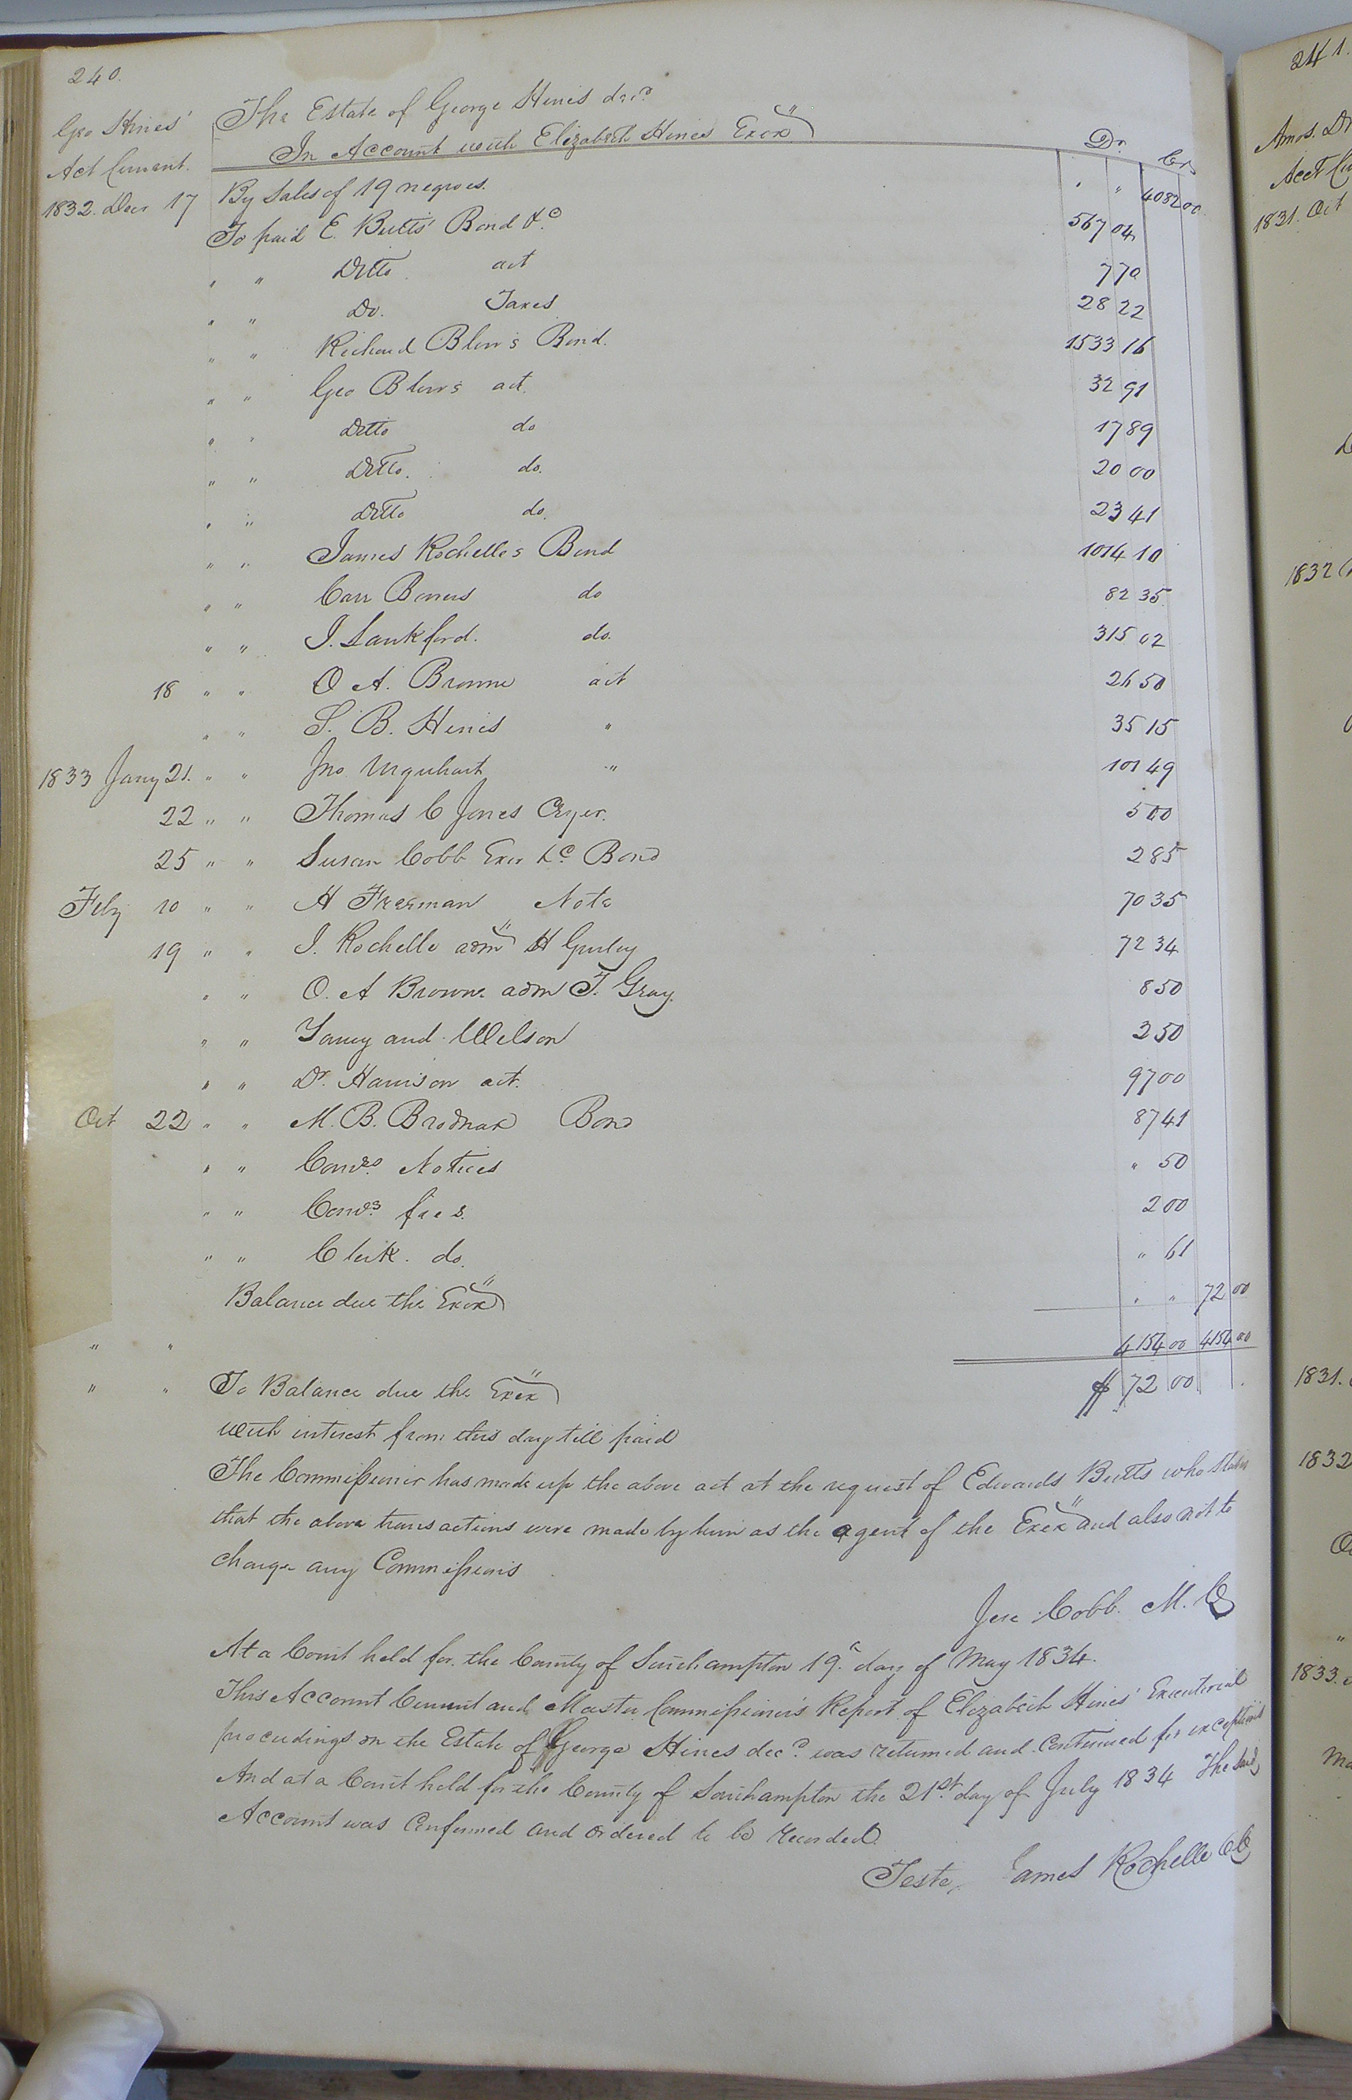 240.
Geo Hines'
Act Current.
The Estate of George Hines decd.
In Account with Elizabeth Hines Exex
Dr. Crs
1832. Decr 17 By Sales of 19 negroes. " " 4082 00
To paid E. Butts' Bond &c 567 04
" " Ditto act 7 70
" " Do. Taxes 28 22
" " Richard Blow's Bond. 1533 16
" " Geo Blow's act. 32 91
" " Ditto do 17 89
" " Ditto. do. 20 00
" " Ditto do. 23 41
" " James Rochelle's Bond 1014 10
" " Carr Bowers do 82 35
" " J. Lankford. do. 315 02
18 " " O A. Browne act 26 50
" " S. B. Hines " 35 15
1833 Jany 21. " " Jno Urquhart " 101 49
22 " " Thomas C Jones Cryer. 5 00
25 " " Susan Cobb Exr &c Bond 2 85
Feby 10 " " H Freeman Note 70 35
19 " " J. Rochelle adm H Gurley 72 34
" " O. A Browne adm T. Gray. 8 50
" " Yancy and Wilson 2 50
" " Dr. Harrison act. 97 00
Oct 22 " " M. B. Brodnax Bond 87 41
" " Comrs. Notices " 50
" " Comrs. fees. 2 00
" " Clerk. do. " 61
Balance due the Exex " " 72 00
" " 4154 00 4154 00
" " To Balance due the Exex $ 72 00
with interest from this day till paid
The Commissioner has made up the above act at the request of Edwards Butts who states
that the above transactions were made by him as the agent of the Exex and also not to
charge any Commissions
Jere Cobb. M. C
At a Court held for the County of Southampton 19. day of May 1834.
This Account Current and Master Commissioner's Report of Elizabeth Hines' Executorial
proceedings on the Estate of George Hines decd. was returned and Continued for exceptions
And at a Court held for the County of Southampton the 21st. day of July 1834 The said
Account was Confirmed and ordered to be recorded.
Teste, James Rochelle Clk
241.
Amos.
Acct
1831. Oct
1832
1831.
1832
1833.